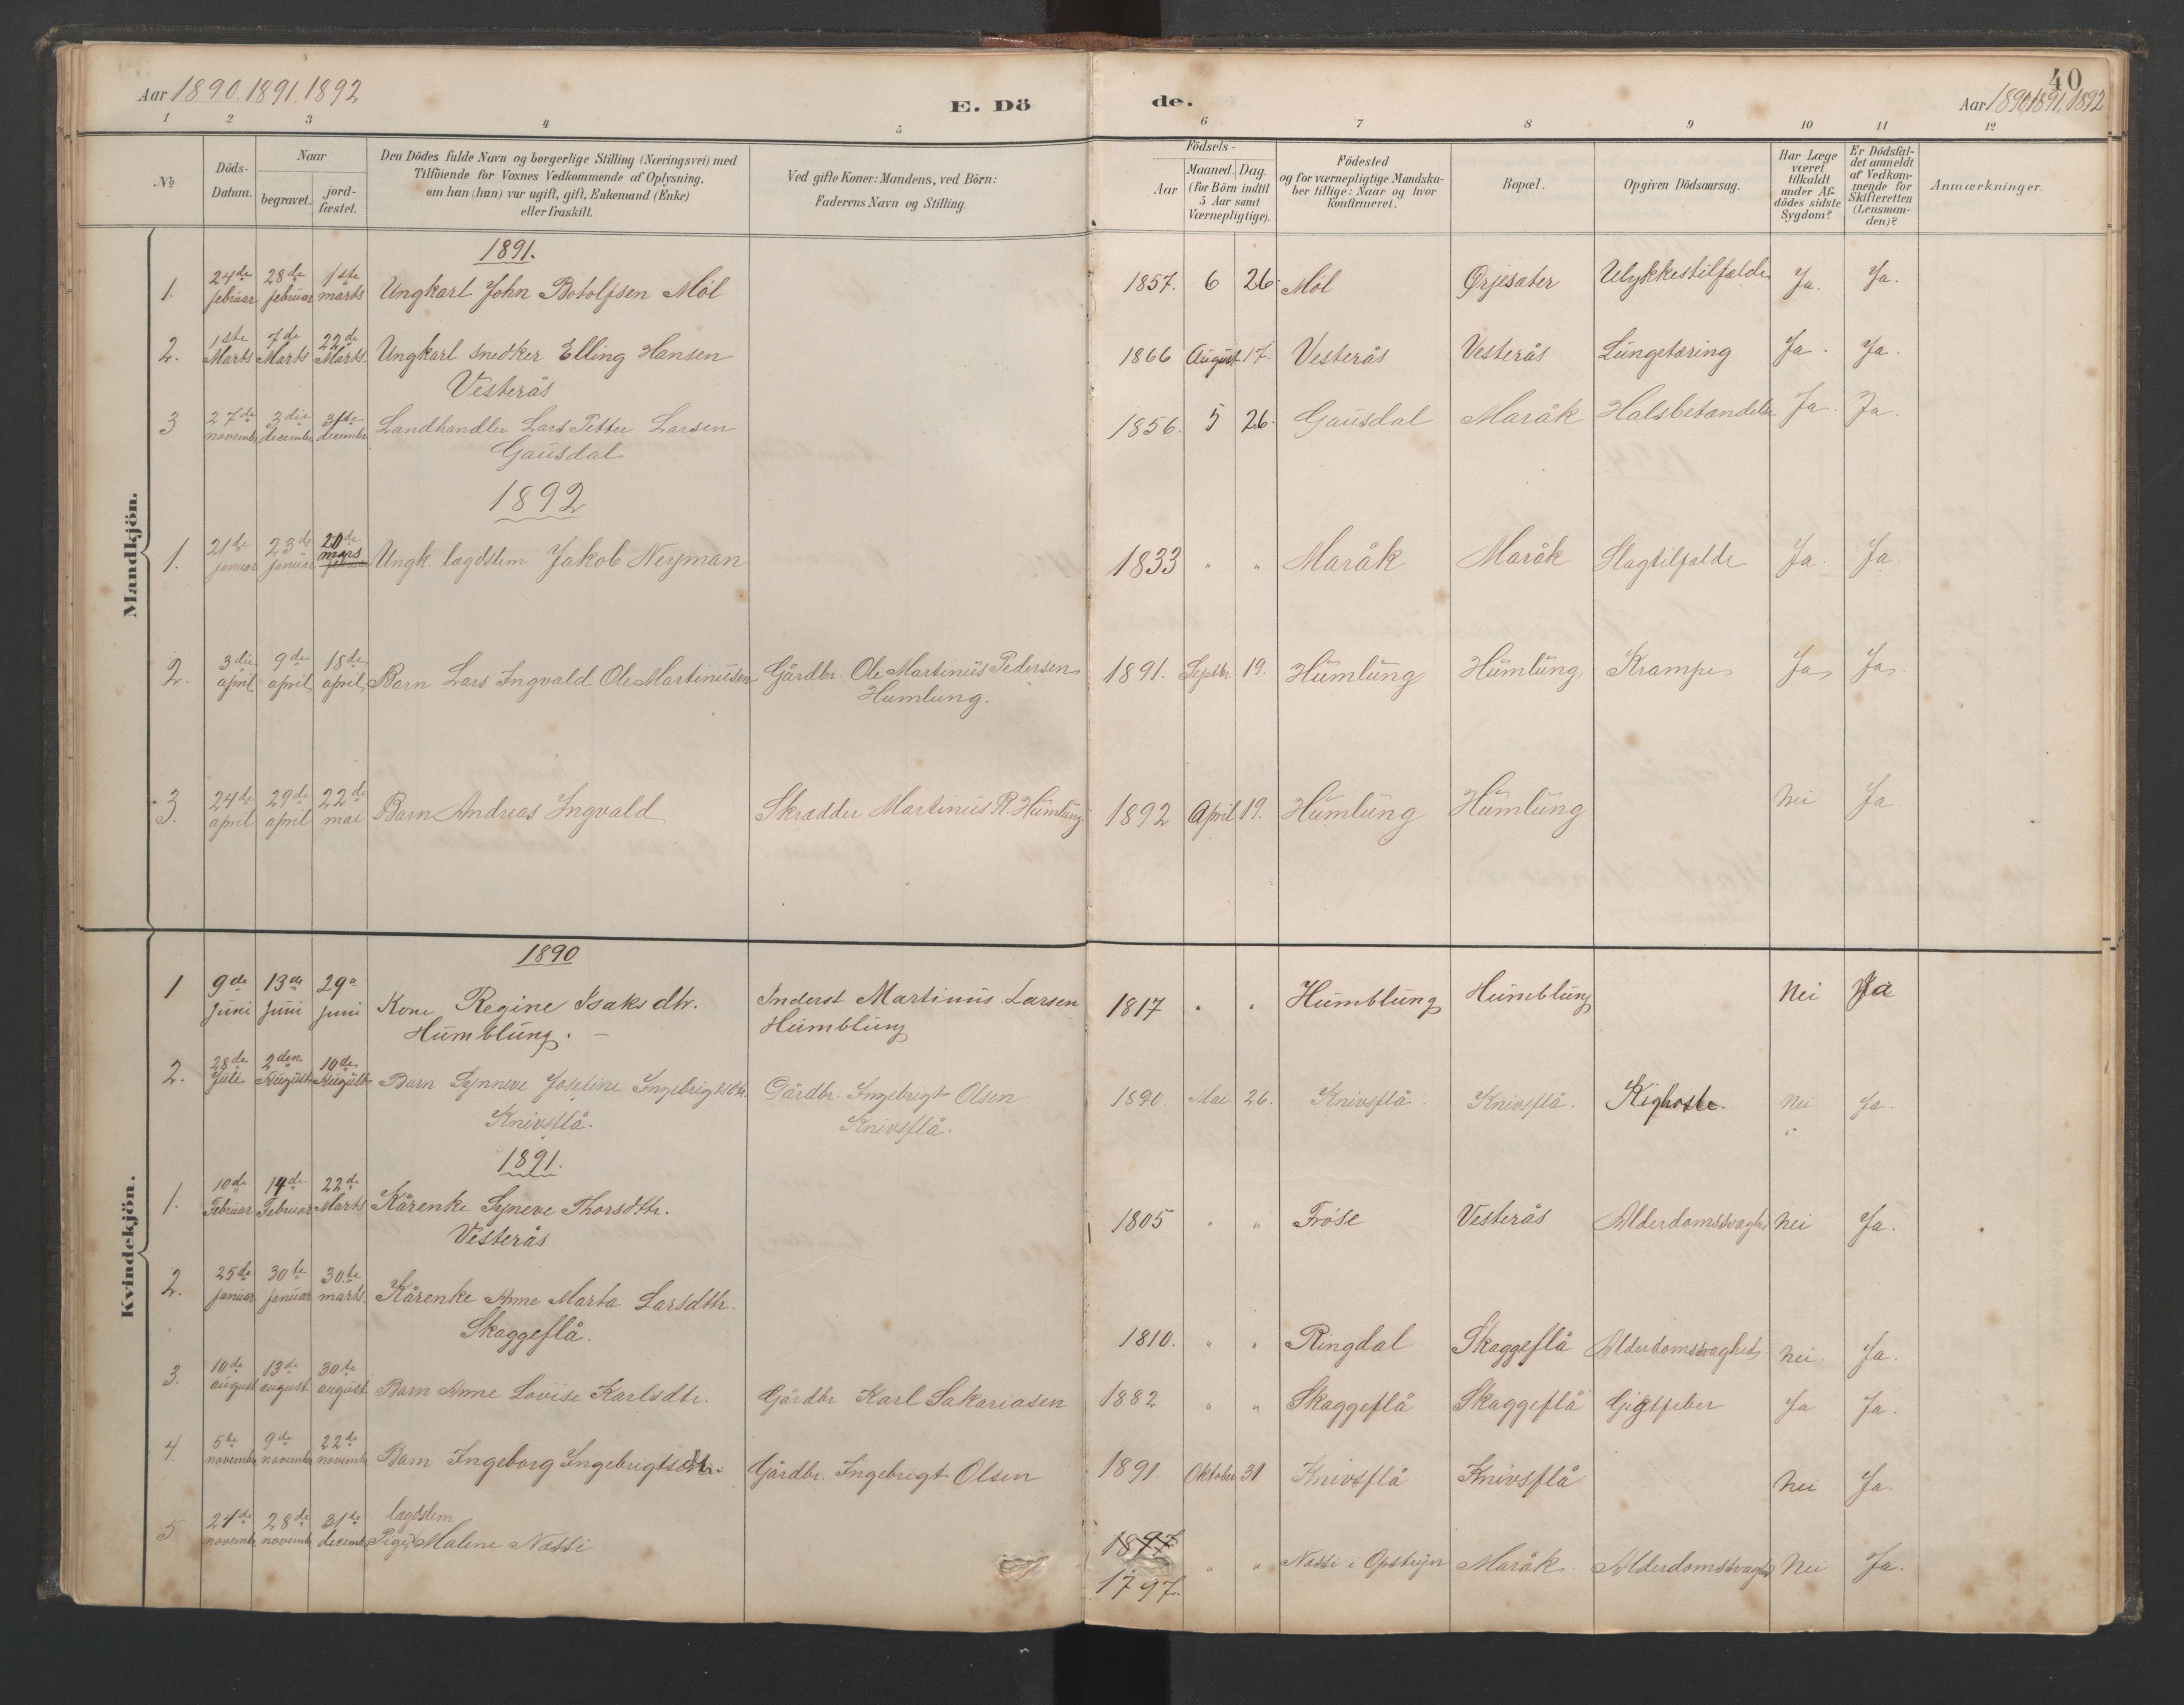 Aar 1890. 1891. 1892
E. Dö de.
40
Aar 1890, 1891, 1892
1 2 3 4 5 6 7 8 9 10 11 12
No
Döds-Datum.
Naar
begravet.
jord-fæstet.
Den Dödes fulde Navn og borgerlige Stilling (Næringsvei) med
Tilföiende for Voxnes Vedkommende af Oplysning,
om han (hun) var ugift, gift, Enkemand (Enke)
eller fraskilt.
Ved gifte Koner: Mandens, ved Börn:
Faderens Navn og Stilling.
Födsels-
Aar
Maaned. Dag.
(for Börn indtil
5 Aar samt
Værnepligtige).
Födested
og for værnepligtige Mandska-
ber tillige: Naar og hvor
konfirmeret.
Bopæl.
Opgiven Dödsaarsag.
Har Læge
været
tilkaldt
under Af-
dödes sidste
Sygdom?
Er Dödsfal-
det anmeldt
af Vedkom-
mende for
Skifteretten
(Lensman-
den)?
Anmærkninger.
Mandkjön.
1891.
1. 24de februar 28de februar 1ste marts Ungkarl John Botolfsen Möl 1857. 6 26. Möl Ørjesæter Ulykkestilfælde Ja. Ja.
2. 1ste Marts 7de Marts 22de Marts. Ungkarl snedker Elling Hansen 1866 August 17. Vesterås Vesterås Lungetæring Ja. Ja.
Vesterås
3 27de novembr 3die decembr 31te decembr Landhandler Lars Petter Larsen 1856. 5 26. Gausdal Maråk Halsbetændelse Ja. Ja.
Gausdal
1892
1. 21de januar 23de januar 20de mars februar Ungk. lægdslem Jakob Nerjman 1833 " " Maråk Maråk Slagtilfælde Ja. Ja
2. 3die april 9de april 18de april Barn Lars Ingvald Ole Martinusen Gårdbr. Ole Martinus Pedersen 1891. Septbr. 19. Humlung Humlung Krampe Ja Ja.
Humlung.
3. 24de april 29de april 22de mai Barn Andreas Ingvald Skrædder Martinus R. Humlung 1892 April 19. Humlung Humlung Nei Ja.
Kvindekjön.
1890
1 9de Juni 13de Juni 29de juni Kone Regine Isaksdtr. Inderst Martinus Larsen 1817 " " Humblung Humblung Nei Ja
Humblung. – Humblung
2. 28de Juli 2den August 10de August Barn Synneve Josefine Ingebrigtsdtr. Gårdbr. Ingebrigt Olsen 1890. Mai 26. Knivsflå. Knivsflå. Kighoste. Nei Ja.
Knivsflå. Knivsflå.
1891.
1. 10de Februar 14de Februar 22de Marts Kårenke Syneve Thorsdttr. 1805 " " Fröse Vesterås Alderdomssvaghed Nei Ja.
Vesterås
2. 25de januar 30te januar 30.te marts. Kårenke Anne Marta Larsdttr. 1810. " " Ringdal Skaggeflå Alderdomssvaghed. Nei. Ja.
Skaggeflå.
3. 10de august 13de august 30te august Barn Anne Lovise Karlsdtr. Gårdbr Karl Sakariasen 1882 " " Skaggeflå Skaggeflå Gigtfeber Ja Ja.
4. 5te novembr 9de novembr 22de novembr Barn Ingeborg Ingebrigtsdtr. Gårdbr. Ingebrigt Olsen 1891. Oktober 31 Knivsflå Knivsflå Nei Ja.
lægdslem
5 24de novembr 28de novembr 31te decembr Pige Malene Næssi 1797. " " Næssi i Opstryn Maråk. Alderdomssvaghed Nei Ja.